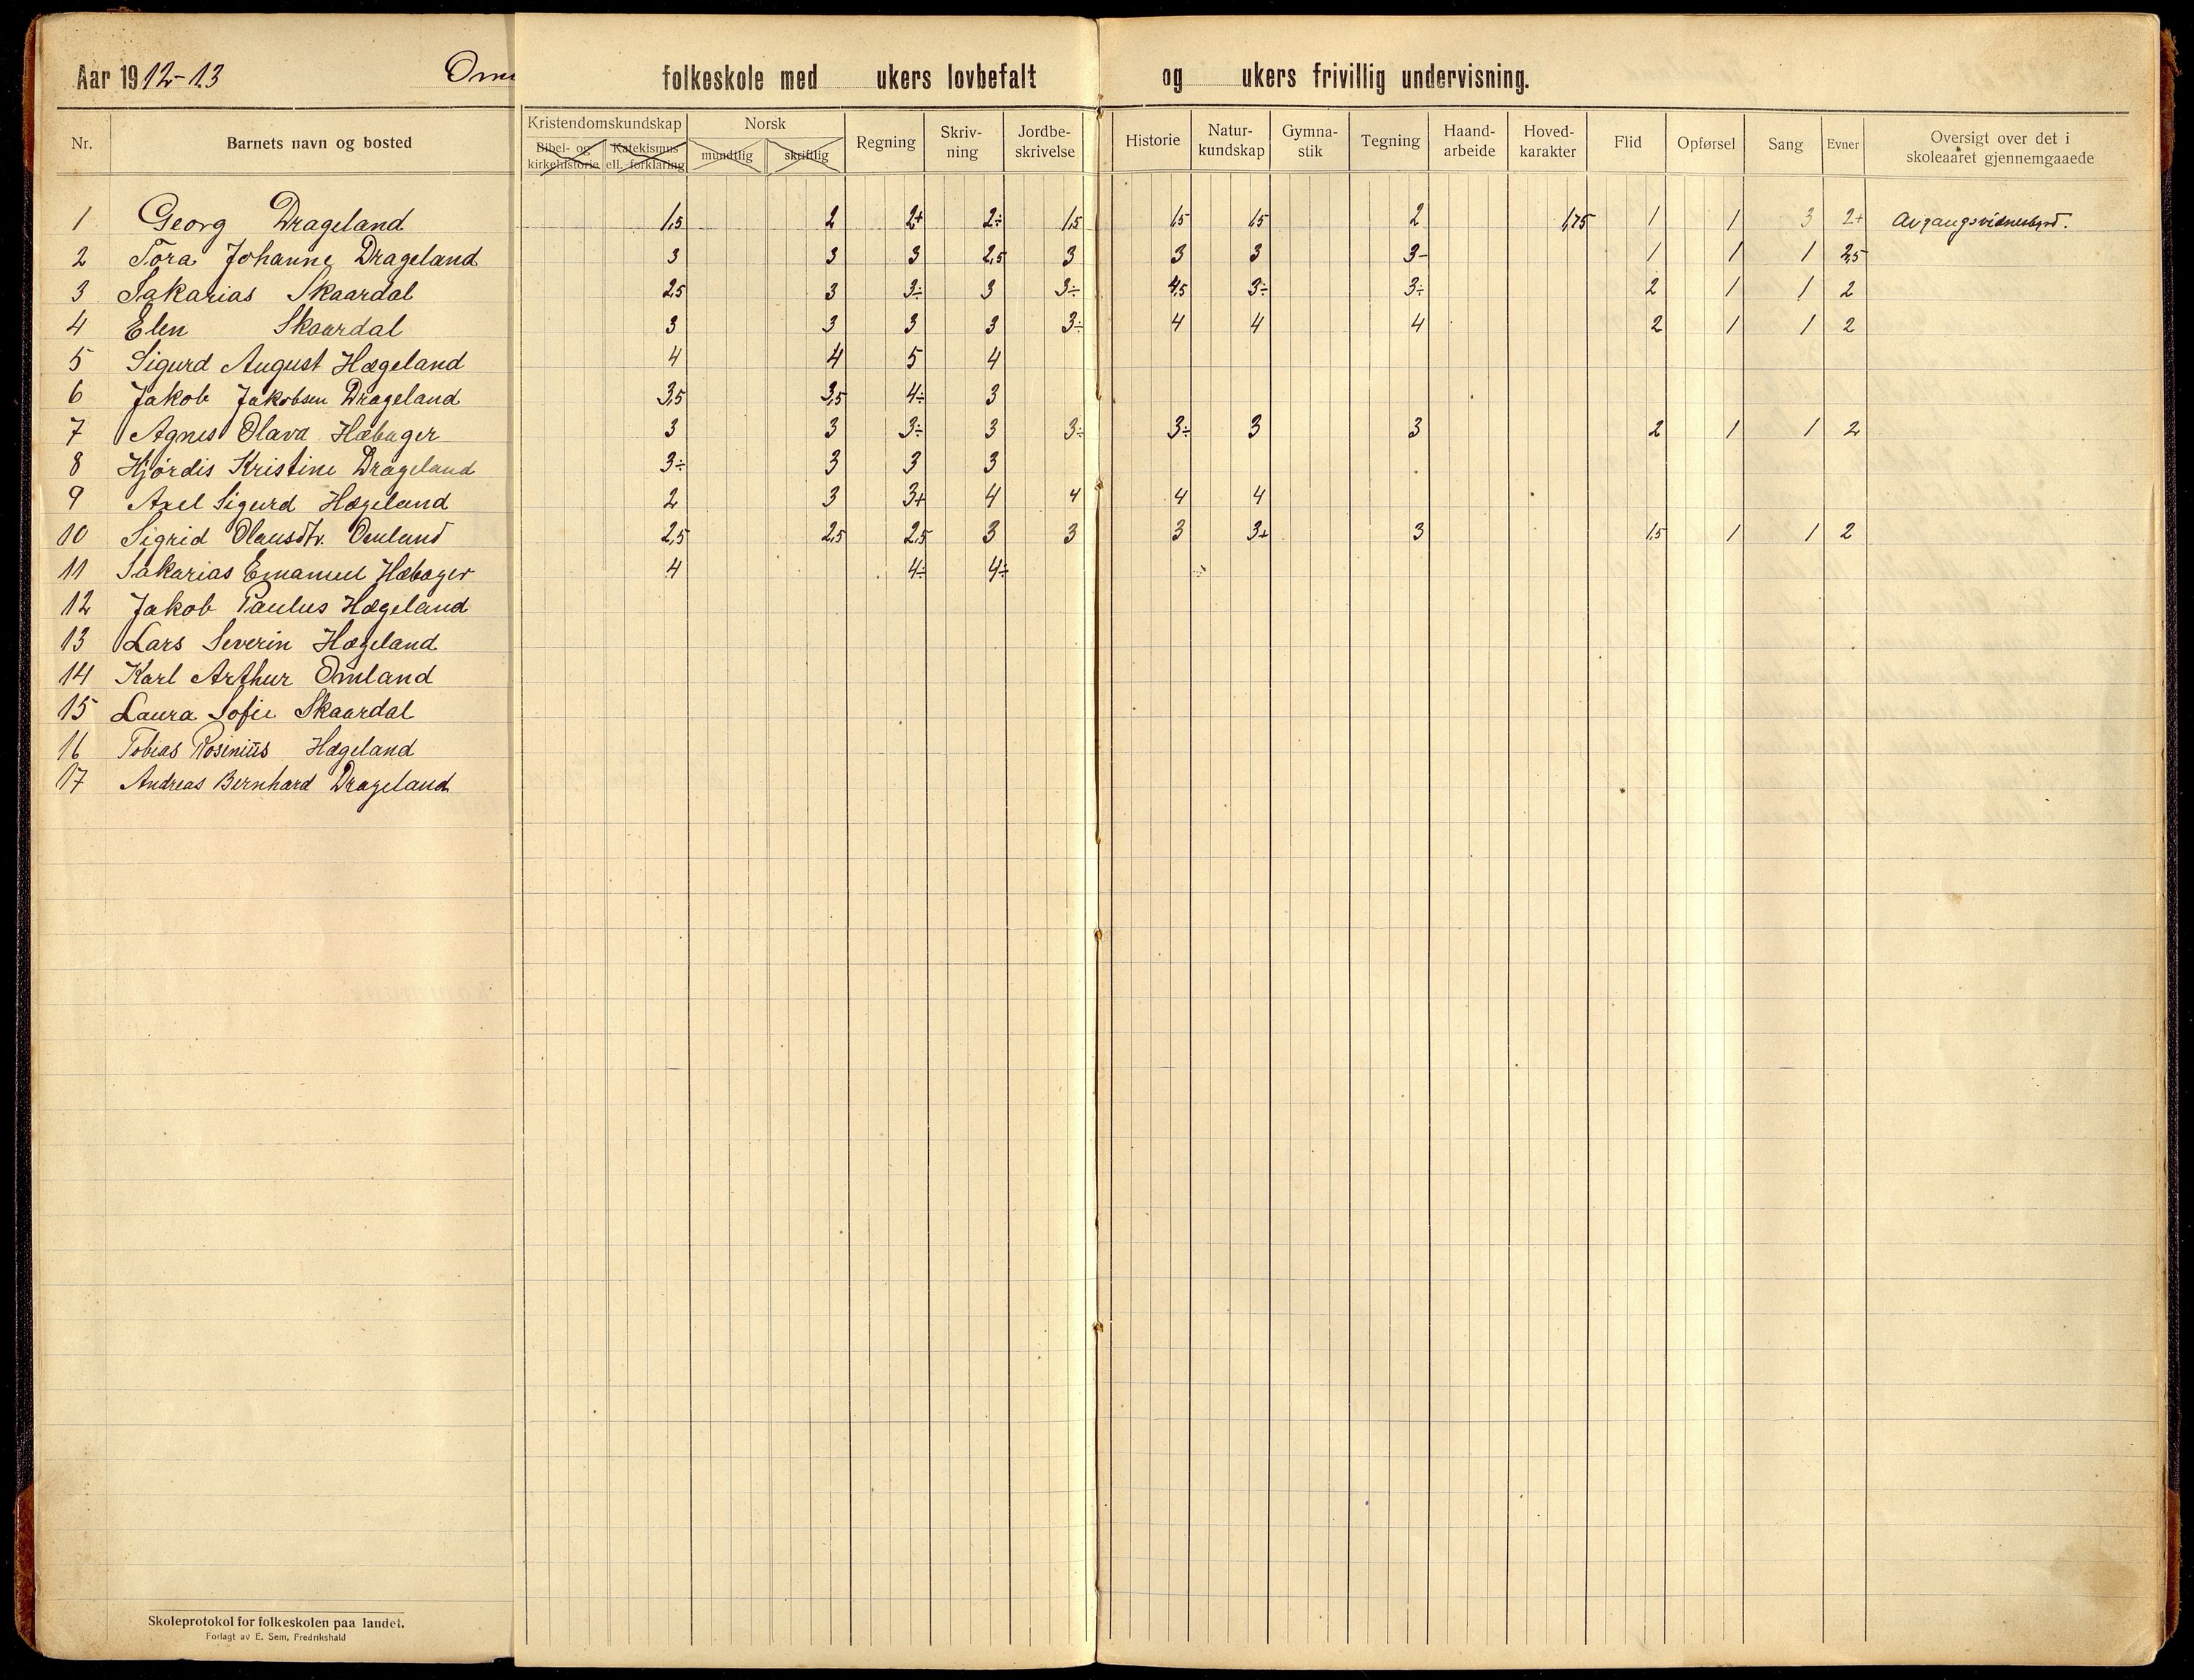 Aar 1912-13 Oml folkeskole med ukers lovbefalt og ukers frivillig undervisning.
Nr. Barnets navn og bosted Kristendomskundskap Bibel- og kirkehistorie Katekismus ell. forklaring Norsk mundtlig skriftlig Regning Skriv-ning Jordbe-skrivelse Historie Natur-kundskap Gymna-stik Tegning Haand-arbeide Hoved-karakter Flid Opførsel Sang Evner Oversigt over det i skoleaaret gjennemgaaede
1 Georg Drageland 1,5 2 2+ 2÷ 1,5 1,5 1,5 2 1,75 1 1 3 2+ Avgangsvidnesbyrd.
2 Tora Johanne Drageland 3 3 3 2,5 3 3 3 3- 1 1 1 2,5
3 Sakarias Skaardal 2,5 3 3÷ 3 3÷ 4,5 3÷ 3÷ 2 1 1 2
4 Elen Skaardal 3 3 3 3 3÷ 4 4 4 2 1 1 2
5 Sigurd August Hægeland 4 4 5 4
6 Jakob Jakobsen Drageland 3,5 3,5 4÷ 3
7 Agnes Olava Hæbager 3 3 3÷ 3 3÷ 3÷ 3 3 2 1 1 2
8 Hjørdis Kristine Drageland 3÷ 3 3 3
9 Axel Sigurd Hægeland 2 3 3+ 4 4 4 4
10 Sigrid Olausdtr. Omland 2,5 2,5 2,5 3 3 3 3+ 3 1,5 1 1 2
11 Sakarias Emanuel Hæbager 4 4÷ 4÷
12 Jakob Paulus Hægeland
13 Lars Severin Hægeland
14 Karl Arthur Omland
15 Laura Sofie Skaardal
16 Tobias Rosinius Hægeland
17 Andreas Bernhard Drageland
Skoleprotokol for folkeskolen paa landet.
Forlagt av E. Sem, Fredrikshald